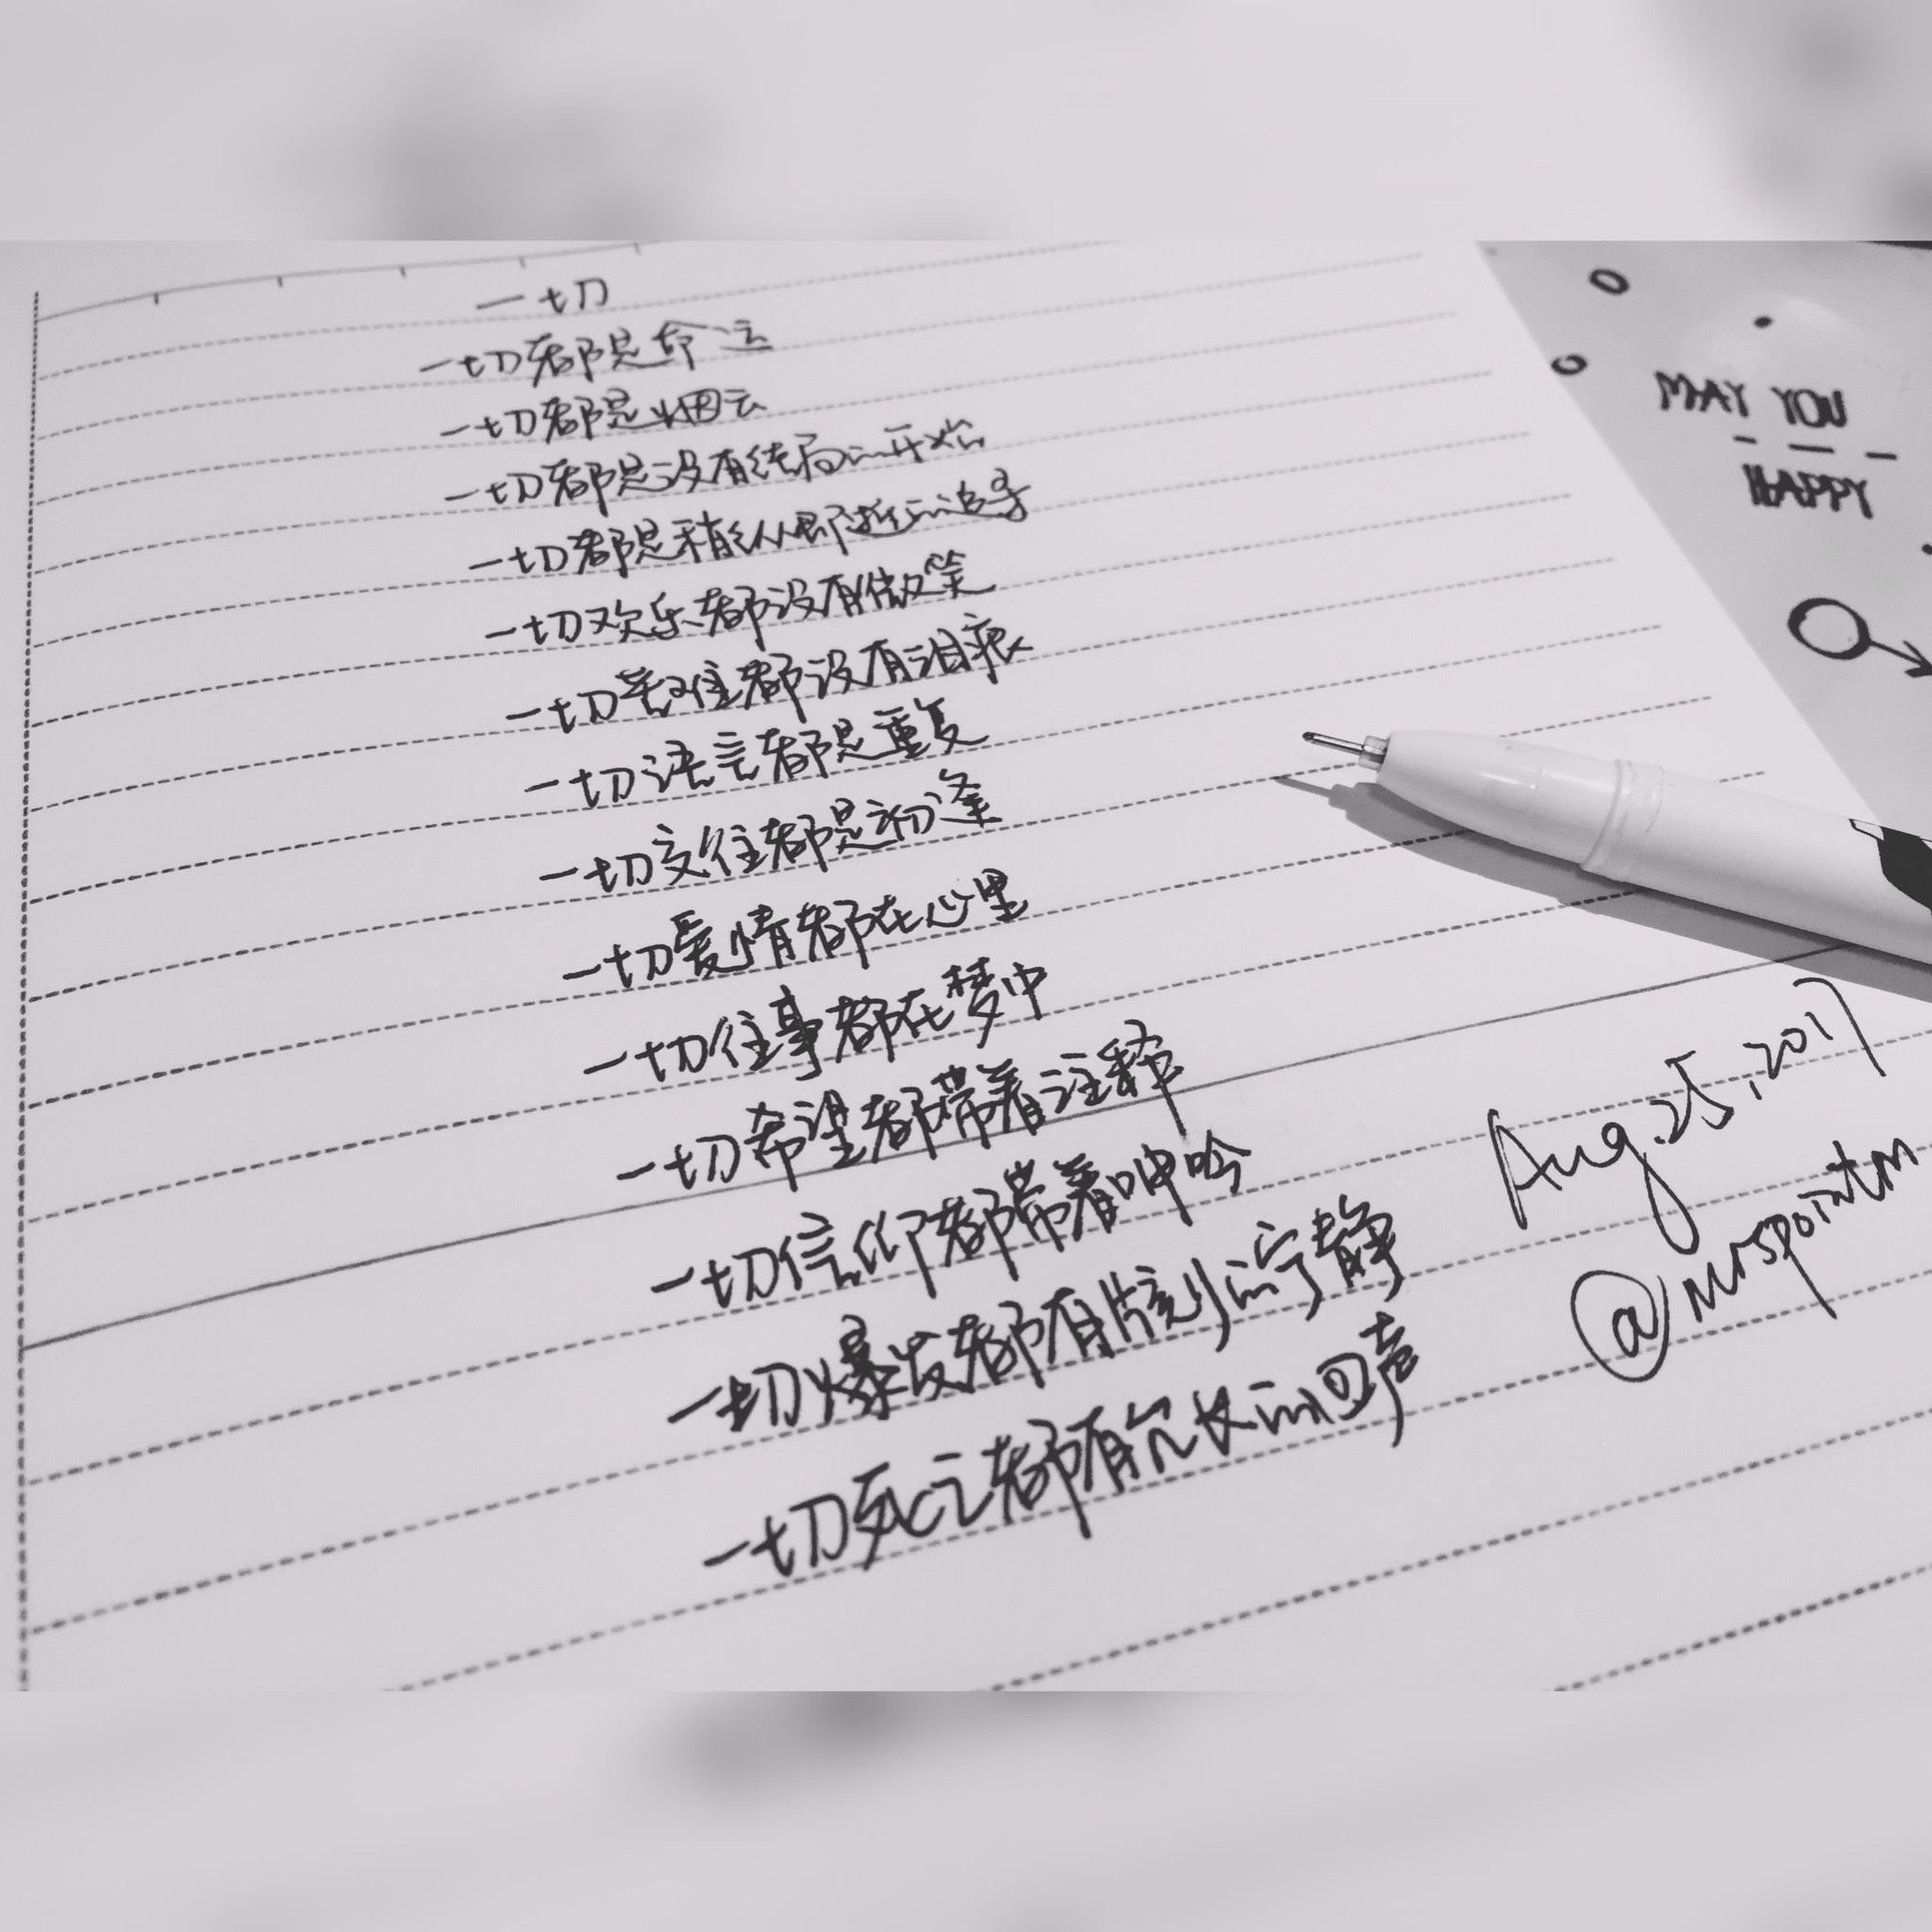 一切
一切都是命运
一切都是烟云
一切都是没有结局的开始
一切都是稍纵即逝的追寻
一切欢乐都没有微笑
一切苦难都没有泪痕
一切语言都是重复
一切交往都是初逢
一切爱情都在心里
一切往事都在梦中
一切希望都带着注释
一切信仰都带着呻吟
一切爆发都有片刻的宁静
一切死亡都有冗长的回声
Aug.25,2017
@mrspointm
MAY YOU
HAPPY